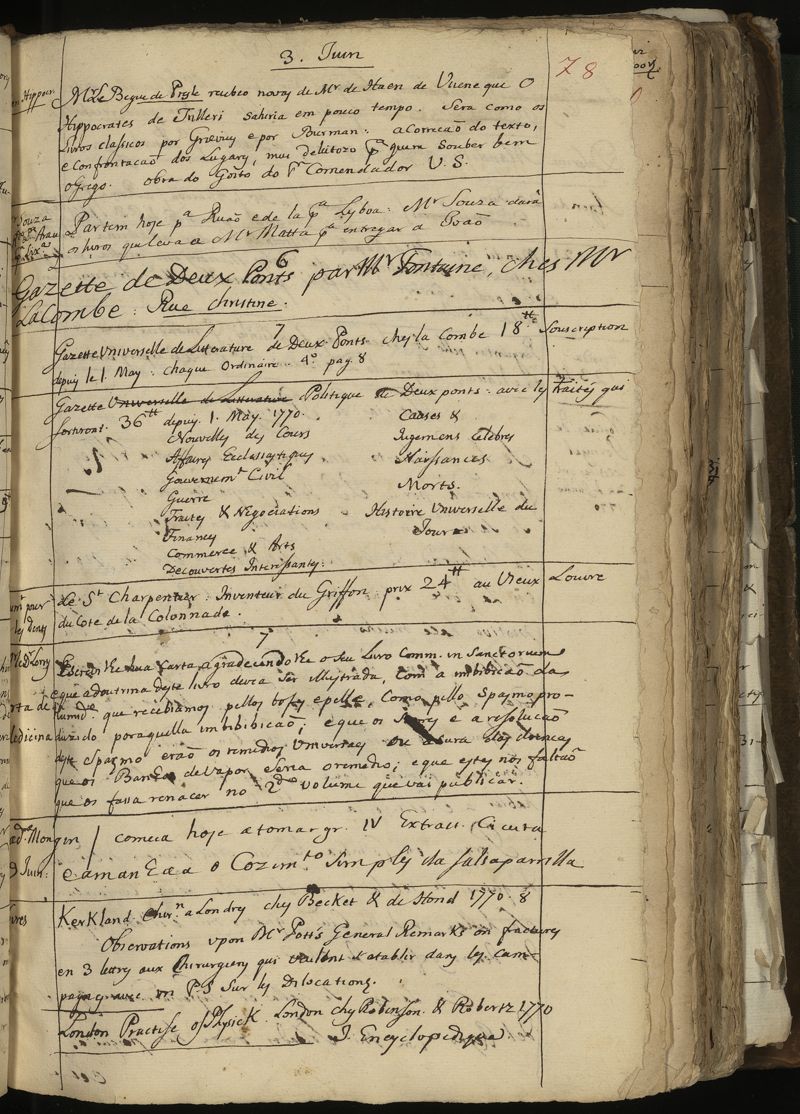 3. Juin
78
Mr Le Begue de Presle recebeo novas de Mr de Haen de Viene que O
Hippocrates de Tulleri sahiria em pouco tempo. Sera como os
livros classicos por Grævius e por Burman: a Correcaõ do texto,
e Confrontacaõ dos Lugares, mui delitozo pa quem souber bem
o grego. obra do Gosto do Sr Comendador V. S.
Souza
Partem hoje pa Ruaõ e de la pa Lysboa: Mr Souza dará
os livros que leva a Mr Matta pa entregar a Joaõ
6
Gazette de Deux Ponts par Mr Fontaine, ches Mr
LaCombe: Rue Christine.
7
Gazette Universelle de Literature de Deux-Ponts chez la Combe 18tt Souscription
depuis le 1. May: chaque Ordinaire 4o pag. 8
Gazette Universelle de Litterature Politique de Deux ponts: avec les traités qui
sortiront. 36tt depuis 1. May. 1770.
Nouvelles des Cours
Affaires Ecclesiastiques
Gouvernemt Civil
Guerre
Traites & Negociations
Finances
Commerce & Arts
Decouvertes Interessantes:
Causes &
Jugemens Celebres
Naissances
Morts.
Histoire Universelle du
Jour
Le Sr Charpentier: Inventeur du Griffon: prix 24tt au Vieux Louvre
du Coté de la Colonnade.
7
Escrevi lhe hua Carta agradecendo lhe o seu Livro Comm. in Sanctorium
e que a doutrina deste livro devia ser illustrada, com a imbibicaõ da
humide que recebiamos pellos bofes e pelle, Como pello Spasmo pro-
duzido por aquella imbibicaõ; e que os e a resolucaõ
deste Spasmo eraõ os remedios Universaes
que os Banhos de Vapor Seria o remedio; e que estes nos faltaõ
que os fassa renacer no 2do volume que vai publicar.
Mongin / comeca hoje a tomar gr. IV Extract. Cicuta
9 Juin: e amanhaã o Cozimto Simples da salsaparrilla
KerKland Chirn a Londres chez Becket & de Hond 1770. 8
Observations upon Mr Pott's General Remarks on fractures
en 3 lettres aux Chirurgiens qui veulent s'etablir dans les cam-
pagnes avec un P.S sur les Dislocations.
London Practise of Physick. London chez Robinson. & Robertz 1770
J. Encyclopedique